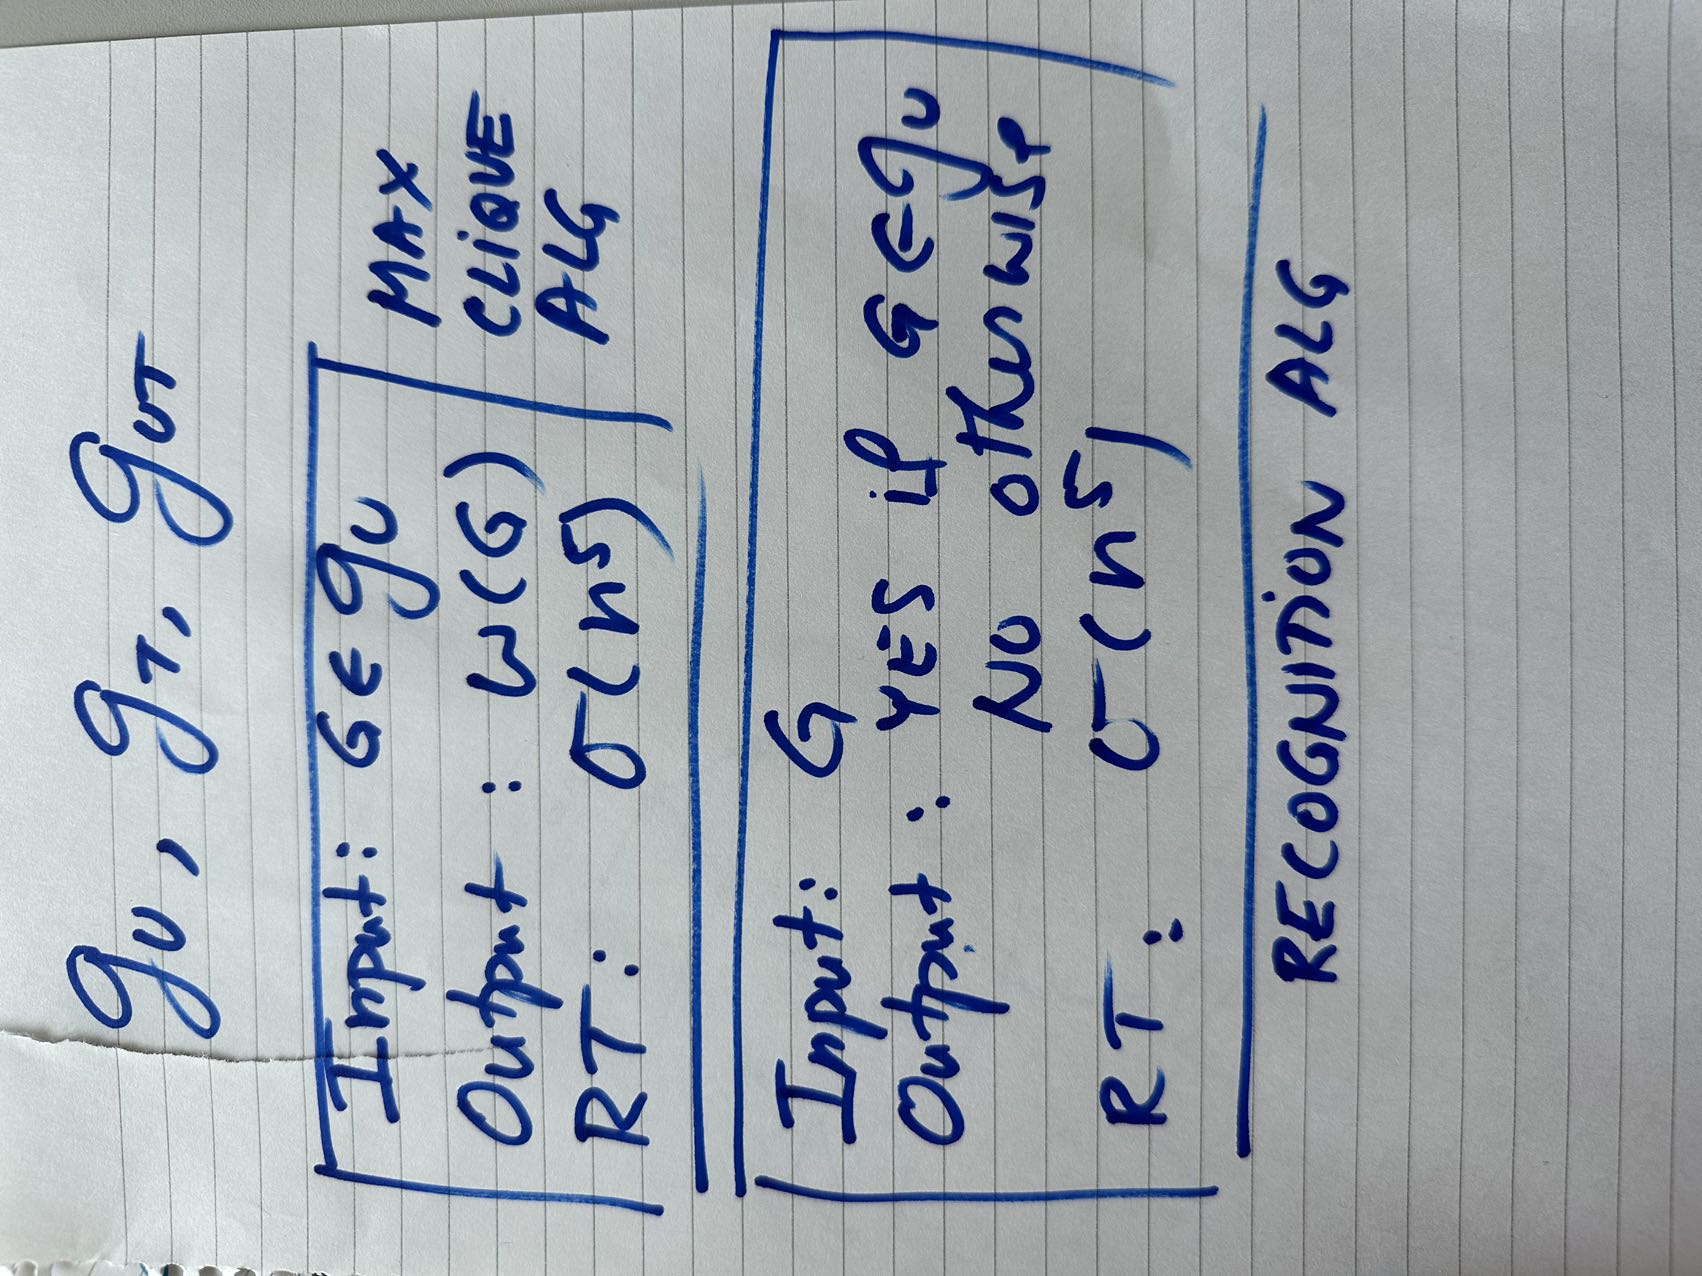 𝒢U, 𝒢T, 𝒢UT
Input: G ∈ 𝒢U
Output: ω(G)
RT: O(n⁵)
MAX
CLIQUE
ALG
Input: G
Output: YES if G ∈ 𝒢U
NO otherwise
RT: O(n⁵)
RECOGNITION ALG